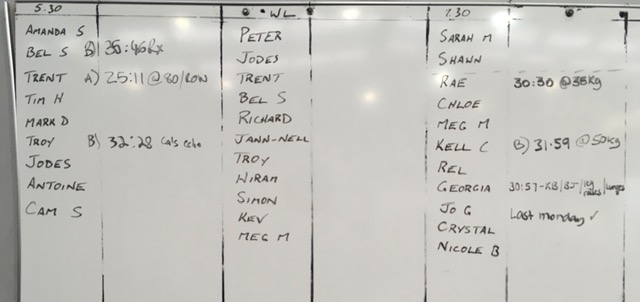 5.30
AMANDA S
BEL S B) 35:46Rx
TRENT A) 25:11 @ 80/ROW
TIM H
MARK D
TROY B) 32:28 Cals echo
JODES
ANTOINE
CAM S
WL
PETER
JODES
TRENT
BEL S
RICHARD
JANN-NELL
TROY
HIRAM
SIMON
KEV
MEG M
7.30
SARAH M
SHAWN
RAE 30:30 @35kg
CHLOE
MEG M
KELL C B) 31.59 @50kg
REL
GEORGIA 30:57-KB/BJ/leg raises/lunges
JO G Last monday ✓
CRYSTAL
NICOLE B